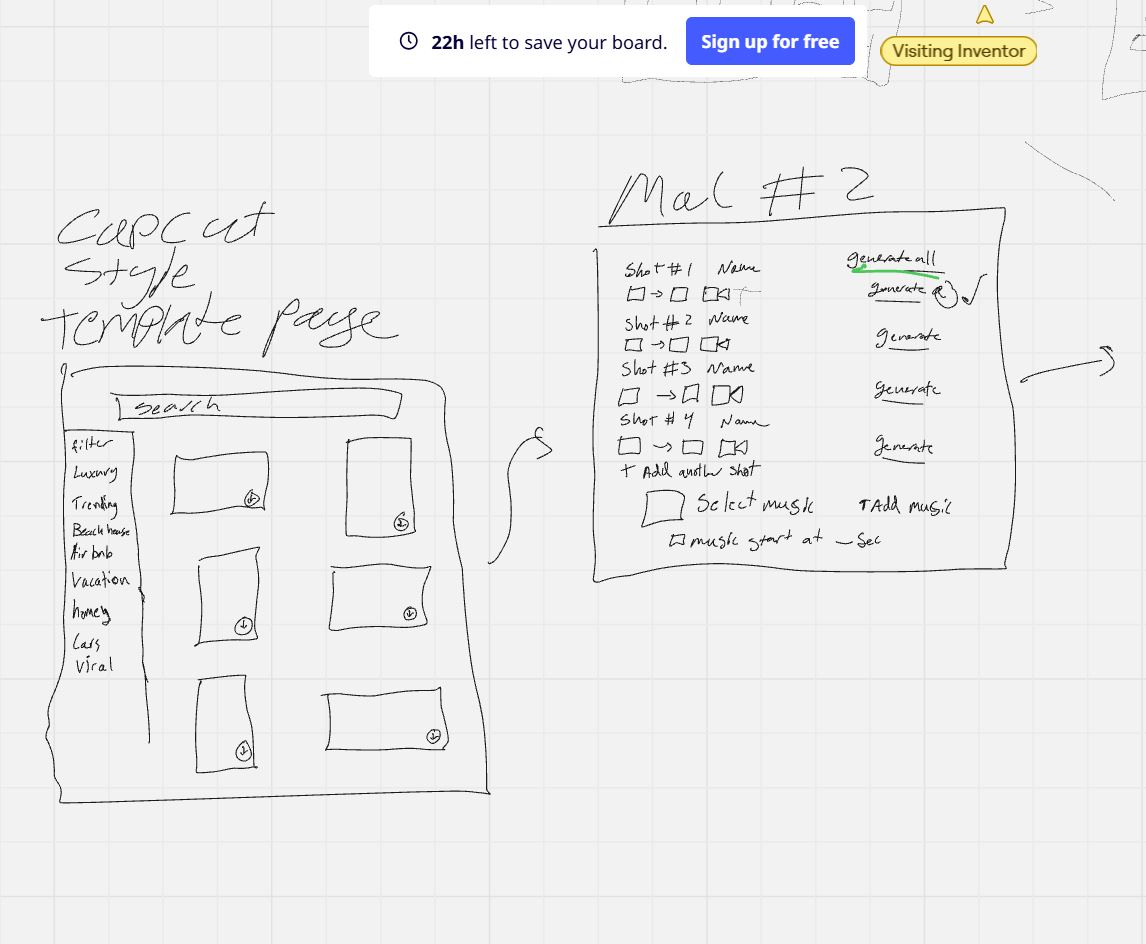 22h left to save your board.
Sign up for free
Visiting Inventor
Capcut
Style
Template page
Search
filter
Luxury
Trending
Beach house
Air bnb
Vacation
homey
Cars
Viral
Mal # 2
generate all
Shot #1 Name
generate
Shot # 2 Name
generate
Shot #3 Name
generate
Shot # 4 Name
generate
+ Add another shot
Select music
↑Add music
music start at _ Sec